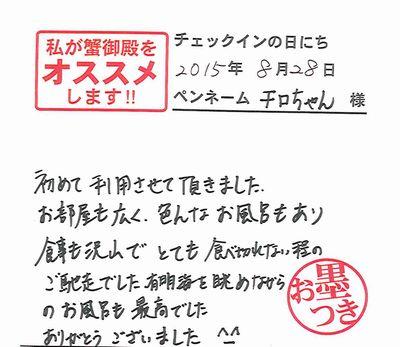 私が蟹御殿を
オススメ
します!!
チェックインの日にち
2015年 8月28日
ペンネーム チロちゃん 様
初めて利用させて頂きました.
お部屋も広く、色んなお風呂もあり
食事も沢山でとても食べ切れない程の
ご馳走でした 有明海を眺めながら
のお風呂も最高でした
ありがとうございました ^^
お墨つき